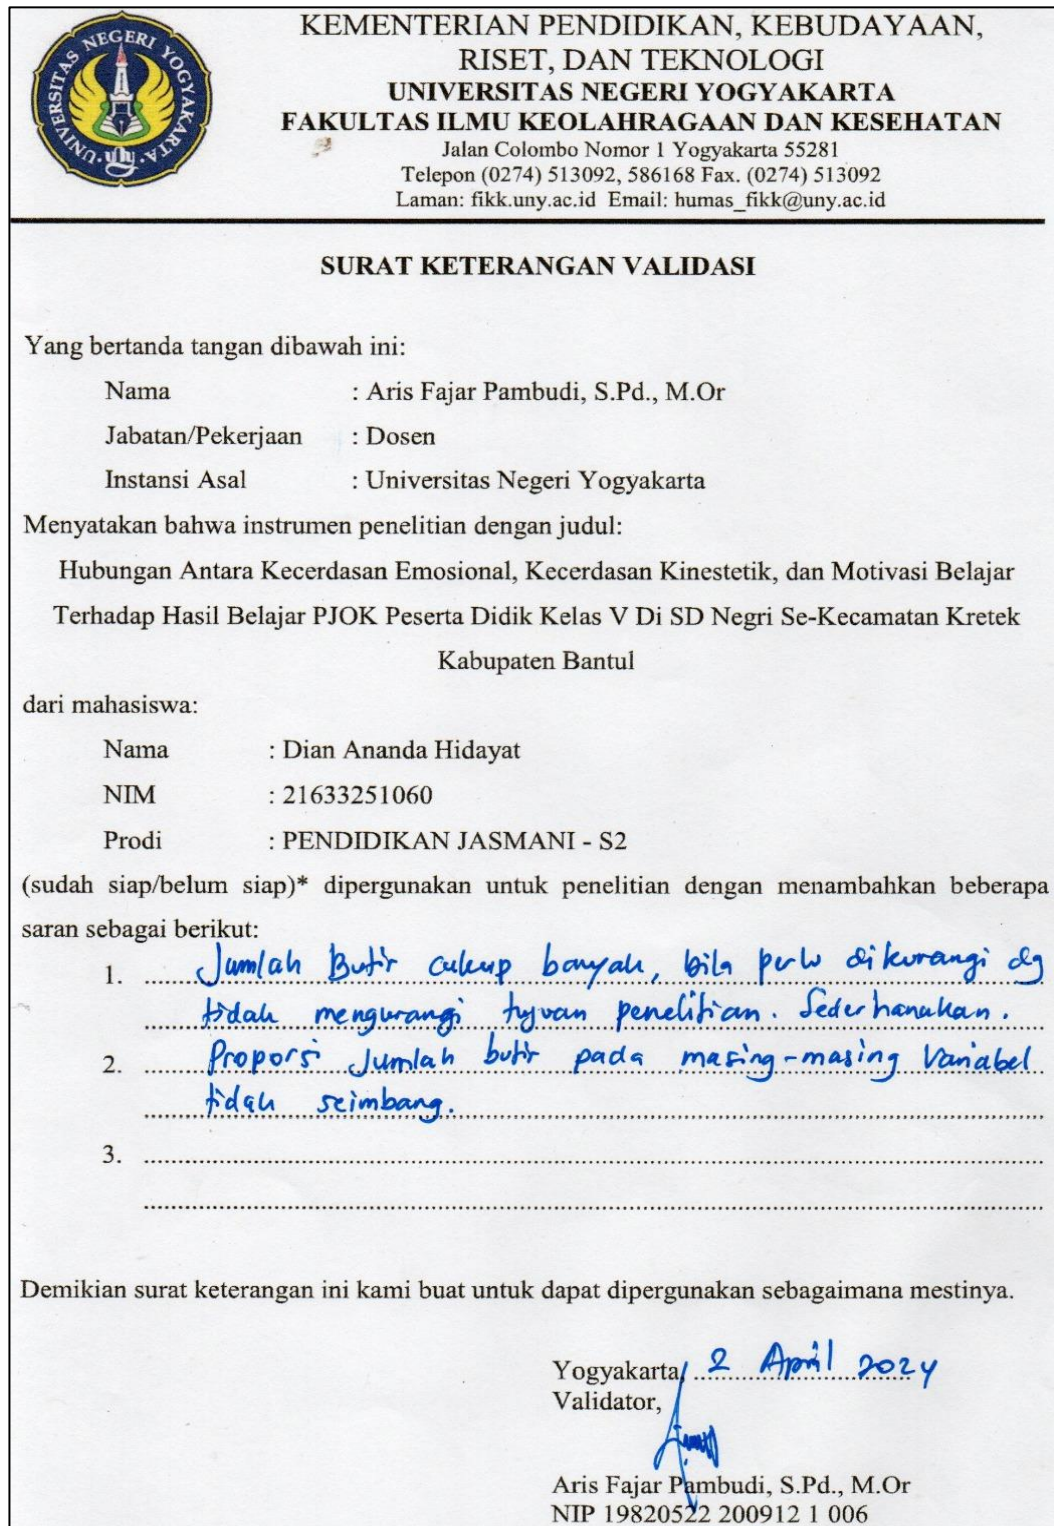 UNIVERSITAS NEGERI YOGYAKARTA
UNY
KEMENTERIAN PENDIDIKAN, KEBUDAYAAN,
RISET, DAN TEKNOLOGI
UNIVERSITAS NEGERI YOGYAKARTA
FAKULTAS ILMU KEOLAHRAGAAN DAN KESEHATAN
Jalan Colombo Nomor 1 Yogyakarta 55281
Telepon (0274) 513092, 586168 Fax. (0274) 513092
Laman: fikk.uny.ac.id Email: humas_fikk@uny.ac.id
SURAT KETERANGAN VALIDASI
Yang bertanda tangan dibawah ini:
Nama : Aris Fajar Pambudi, S.Pd., M.Or
Jabatan/Pekerjaan : Dosen
Instansi Asal : Universitas Negeri Yogyakarta
Menyatakan bahwa instrumen penelitian dengan judul:
Hubungan Antara Kecerdasan Emosional, Kecerdasan Kinestetik, dan Motivasi Belajar
Terhadap Hasil Belajar PJOK Peserta Didik Kelas V Di SD Negri Se-Kecamatan Kretek
Kabupaten Bantul
dari mahasiswa:
Nama : Dian Ananda Hidayat
NIM : 21633251060
Prodi : PENDIDIKAN JASMANI - S2
(sudah siap/belum siap)* dipergunakan untuk penelitian dengan menambahkan beberapa
saran sebagai berikut:
1. Jumlah Butir cukup banyak, bila perlu dikurangi dg
tidak mengurangi tujuan penelitian. Sederhanakan.
2. Proporsi Jumlah butir pada masing-masing Variabel
tidak seimbang.
3.
Demikian surat keterangan ini kami buat untuk dapat dipergunakan sebagaimana mestinya.
Yogyakarta, 2 April 2024
Validator,
Aris Fajar Pambudi, S.Pd., M.Or
NIP 19820522 200912 1 006